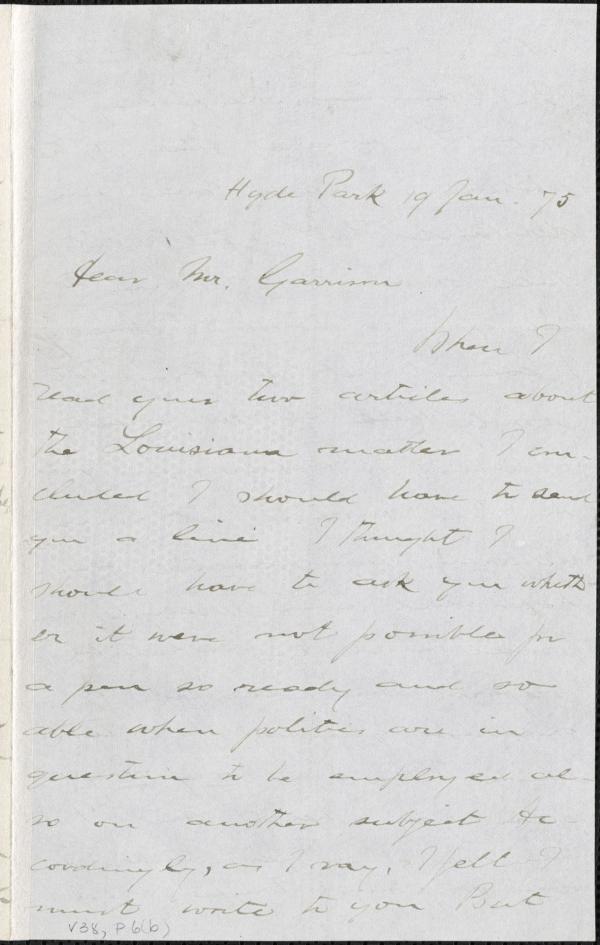 Hyde Park 19 Jan. 75
Dear Mr. Garrison
When I
read your two articles about
the Louisiana matter I con-
cluded I should have to send
you a line I thought I
should have to ask you wheth
er it were not possible for
a pen so ready and so
able when politics are in
question to be employed al-
so on another subject Ac-
cordingly, as I say, I felt I
must write to you But
V38, P6(b)